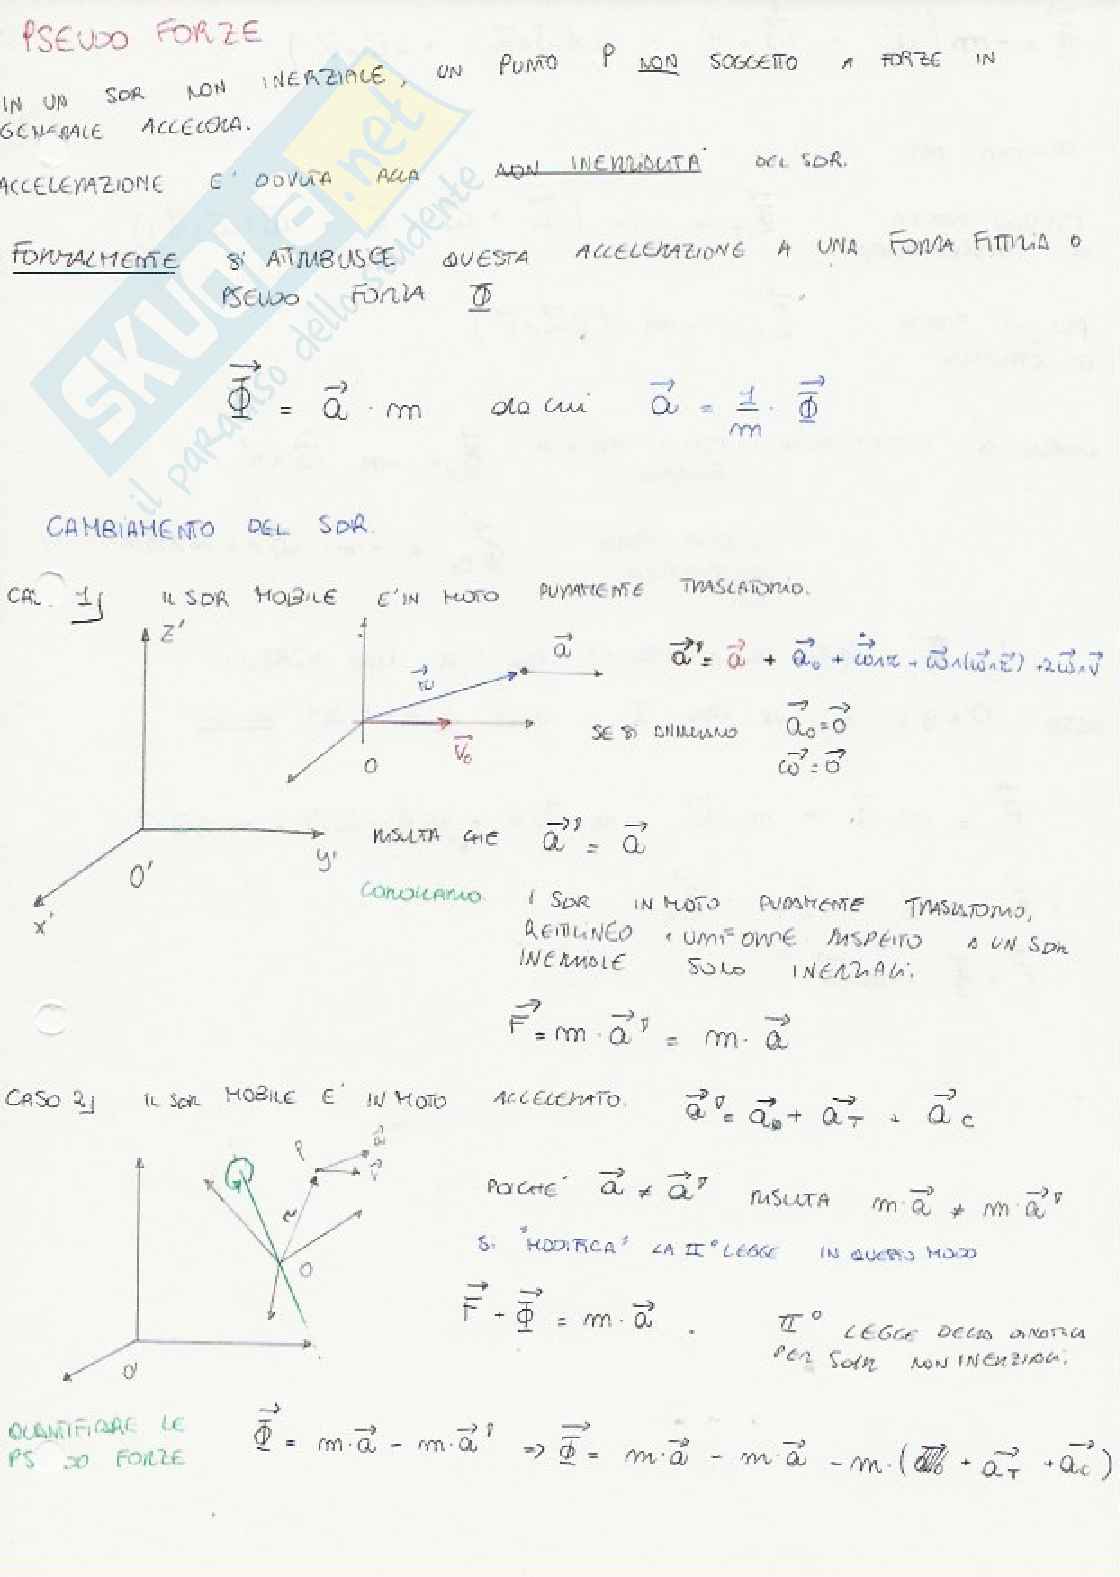 PSEUDO FORZE
IN UN SDR NON INERZIALE, UN PUNTO P NON SOGGETTO A FORZE IN
GENERALE ACCELERA.
ACCELERAZIONE E' DOVUTA ALLA NON INERZIALITA' DEL SDR.
FORMALMENTE SI ATTRIBUISCE QUESTA ACCELERAZIONE A UNA FORZA FITTIZIA O
PSEUDO FORZA Φ
SKUOLA.net
il paradiso dello studente
Φ⃗ = a⃗ · m da cui a⃗ = 1/m · Φ⃗
CAMBIAMENTO DEL SDR.
1) IL SDR MOBILE E' IN MOTO PURAMENTE TRASLATORIO.
Z'
a⃗
r⃗
a⃗' = a⃗ + a⃗₀ + ω⃗̇∧r + ω⃗∧(ω⃗∧r⃗) + 2ω⃗∧v⃗
V⃗₀
O
SE SI ANNULLANO a⃗₀ = 0⃗
ω⃗ = 0⃗
O'
y'
x'
RISULTA CHE a⃗' = a⃗
COROLLARIO. I SDR IN MOTO PURAMENTE TRASLATORIO,
RETTILINEO E UNIFORME RISPETTO A UN SDR
INERZIALE SONO INERZIALI.
F⃗ = m · a⃗' = m · a⃗
CASO 2) IL SDR MOBILE E' IN MOTO ACCELERATO. a⃗' = a⃗₀ + a⃗_T + a⃗_C
P
a⃗
v⃗
r
O
O'
POICHE' a⃗ ≠ a⃗' RISULTA m·a⃗ ≠ m·a⃗'
SI "MODIFICA" LA II° LEGGE IN QUESTO MODO
F⃗ + Φ⃗ = m · a⃗ . II° LEGGE DELLA DINAMICA
PER SDR NON INERZIALI.
QUANTIFICARE LE
FORZE
Φ⃗ = m·a⃗ - m·a⃗' => Φ⃗ = m·a⃗ - m·a⃗ - m·( + a⃗_T + a⃗_C)